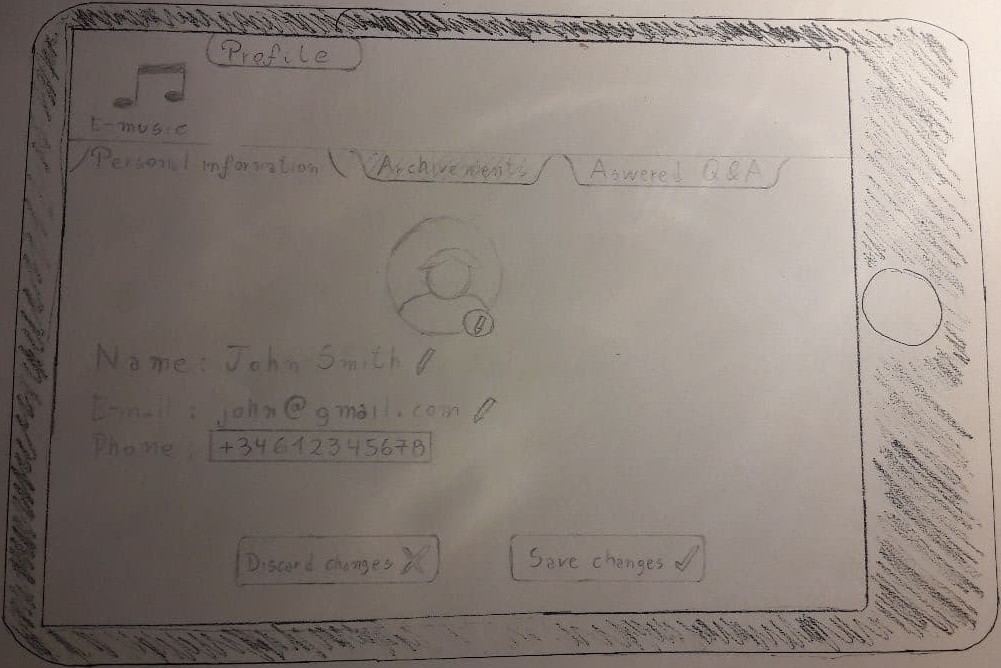 Profile
E-music
Personal information
Archivements
Aswered Q&A
Name: John Smith
E-mail: john@gmail.com
Phone: +34612345678
Discard changes
Save changes